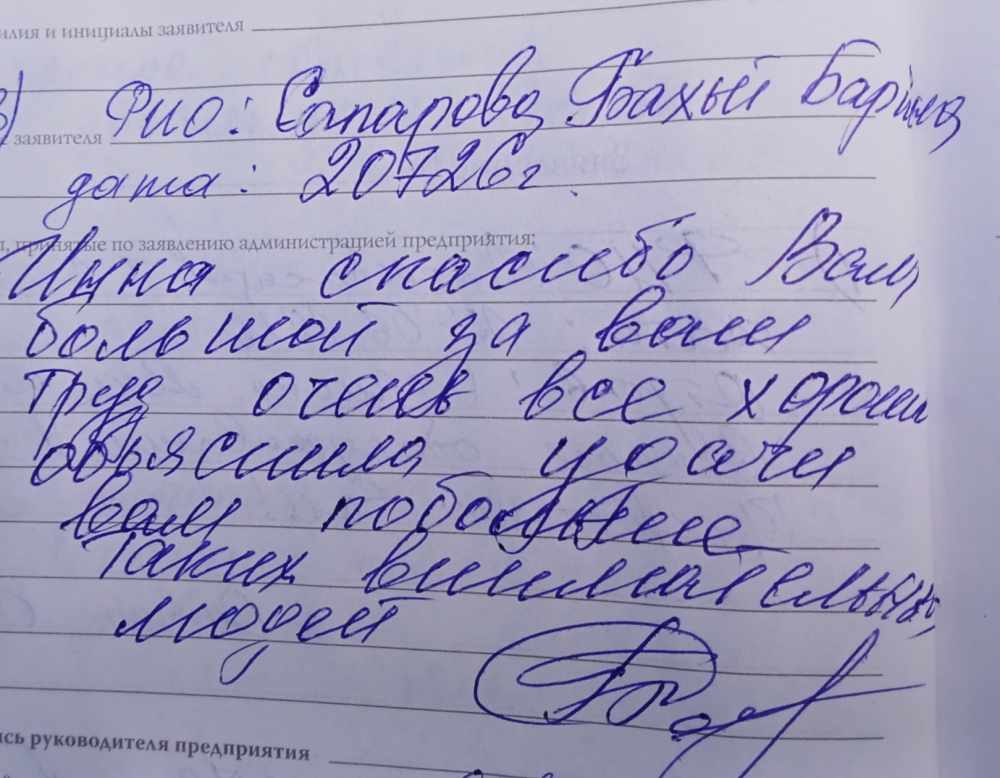 илия и инициалы заявителя
ФИО: Сапарова Бахыт
заявителя
дата: 20726г.
принятые по заявлению администрацией предприятия:
Инна спасибо Вам,
большой за ваш
труд очень все хорошо
объяснила удачи
вам побольше
таких внимательных
людей
сь руководителя предприятия